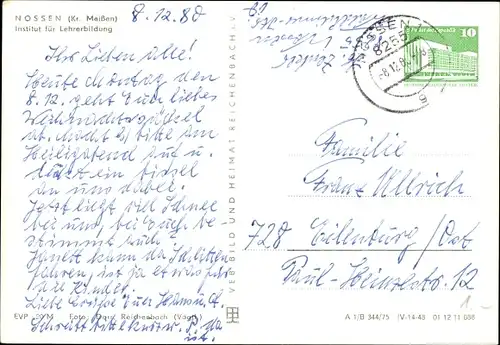 NOSSEN (Kr. Meißen)
Institut für Lehrerbildung
8.12.80
Ihr Lieben alle!
Heute Montag den
8.12. geht Euch liebes
Weihnachts
ab. Macht es bitte am
Heiligabend auf u.
denkt ein bissel
an uns dabei.
Jetzt liegt viel Schnee
bei uns, bei Euch be-
stimmt auch.
kann da Schlitten
fahren, ist ja etwas für
die Kinder.
Liebe Grüße Euer
Schreibt bitte kurz w. P. da
ist.
VEB BILD UND HEIMAT REICHENBACH i.V.
NOSSEN
8255
-8.12.80
a
10
Familie
Franz Ullrich
728 Eilenburg/Ost
Paul-Heinze str. 12
EVP 20 M Foto: Darr, Reichenbach (Vogtl.)
A 1/B 344/75 IV-14-48 01 12 11 088
1.-